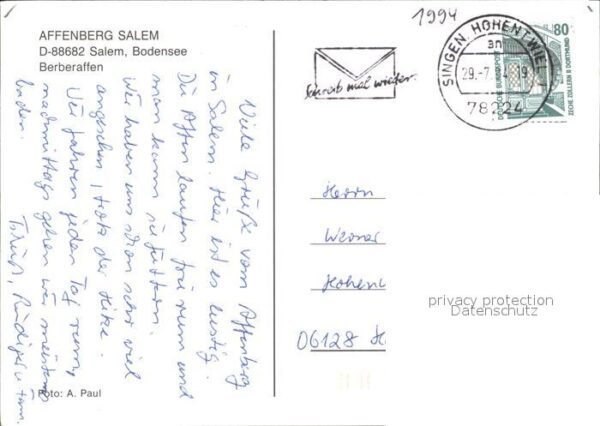 AFFENBERG SALEM
D-88682 Salem, Bodensee
Berberaffen
1994
SINGEN, HOHENTWIEL
an
29.-7. 4 19
78224
80
DEUTSCHE BUNDESPOST
ZECHE ZOLLERN II DORTMUND
Schreib mal wieder.
Viele Grüße vom Affenberg
in Salem. Hier ist es lustig.
Die Affen laufen frei rum und
man kann sie füttern.
Wir haben uns schon sehr viel
angesehen, trotz der Hitze.
Wir fahren jeden Tag rum,
nachmittags gehen wir meistens
baden.
Tschüß, Rüdiger u.
Herrn
Werner
Hohen
06128 H
privacy protection
Datenschutz
Foto: A. Paul